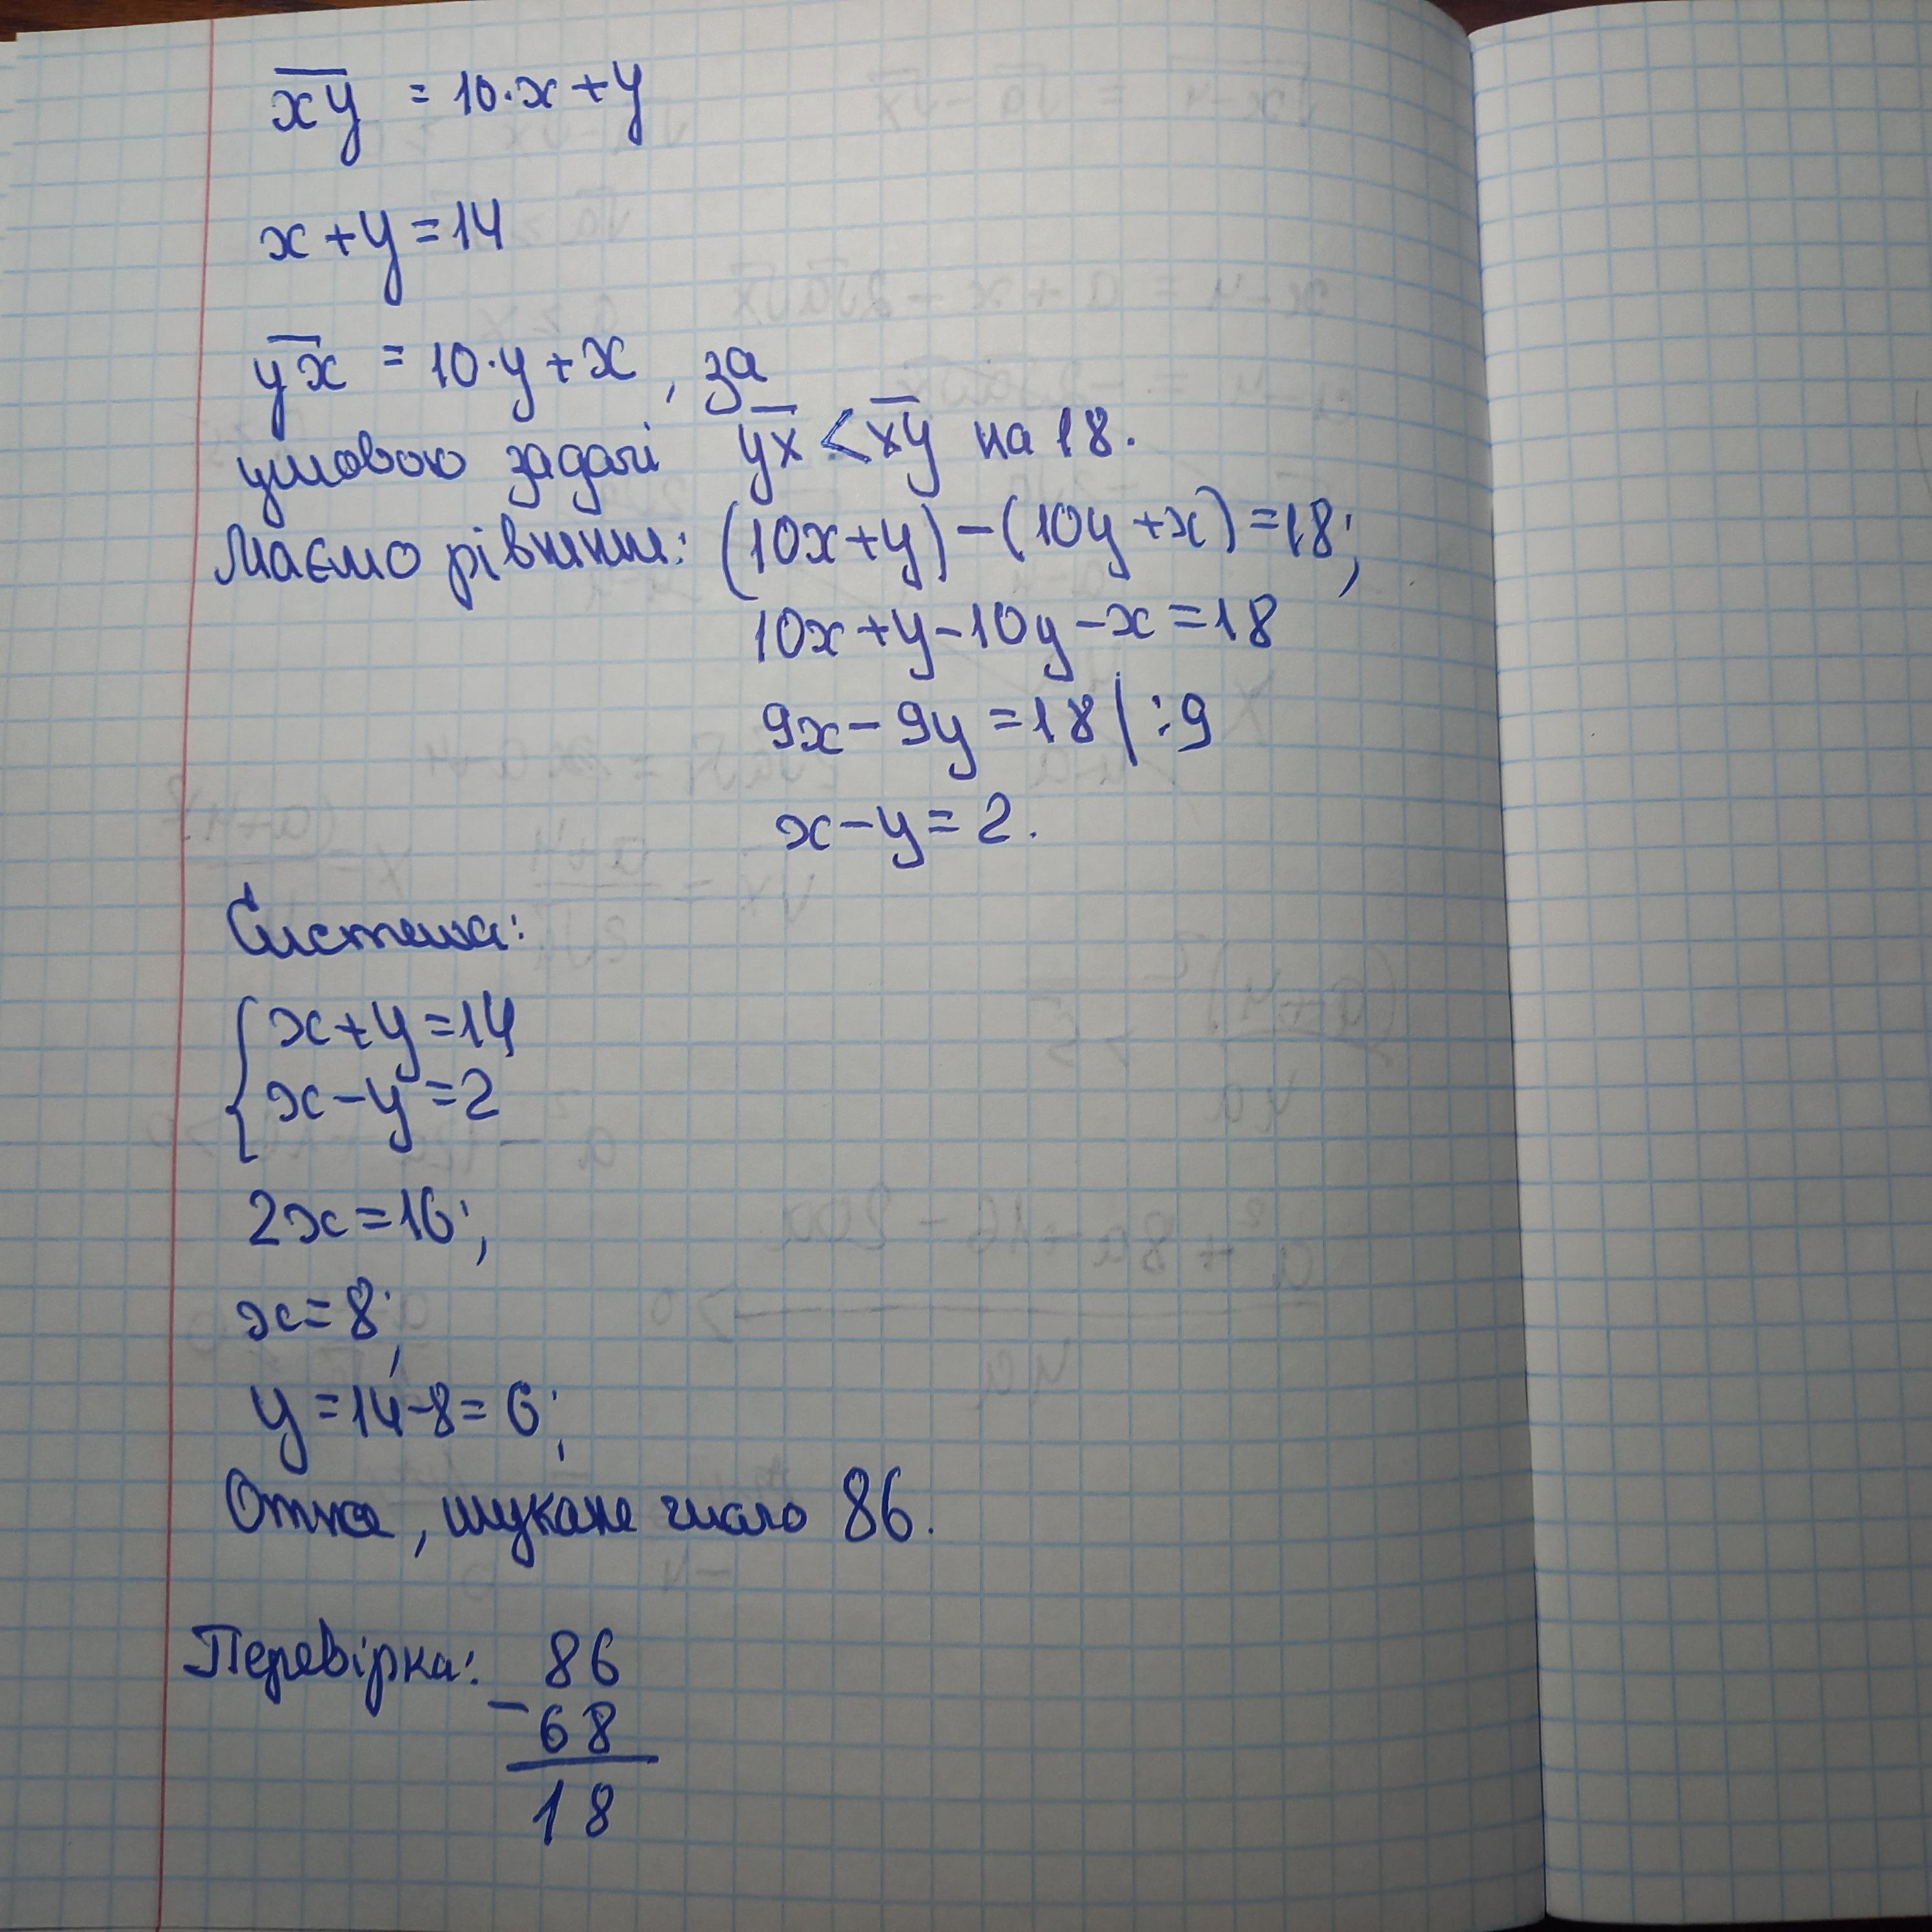 x̅y̅ = 10·x+y
x+y=14
y̅x̅ = 10·y+x, за
умовою задачі y̅x̅ < x̅y̅ на 18.
Маємо рівняння: (10x+y)-(10y+x)=18;
10x+y-10y-x=18
9x-9y=18 | :9
x-y=2.
Система:
{ x+y=14
x-y=2
2x=16;
x=8;
y=14-8=6;
Отже, шукане число 86.
Перевірка: 86
- 68
18